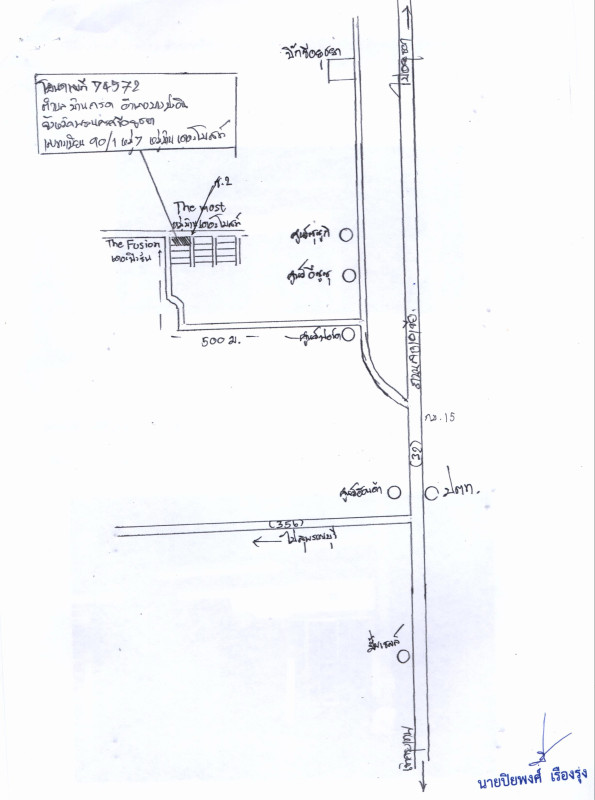 โฉนดเลขที่ 74572
ตำบลบ้านกรด อำเภอบางปะอิน
จังหวัดพระนครศรีอยุธยา
ทะเบียน 90/1 หมู่ 7 หมู่บ้าน เดอะโมสท์
บิ๊กซีอยุธยา
ซ.2
The most
หมู่บ้านเดอะโมสท์
The Fusion
เดอะฟิวชั่น
ศูนย์ซูซูกิ
ศูนย์อีซูซุ
ศูนย์ฟอร์ด
500 ม.
ถนนสายเอเซีย
กม.15
(32)
ศูนย์ฮอนด้า
ปตท.
(356)
ไปสุพรรณบุรี
ปั๊มเชลล์
นายปิยพงศ์ เรืองรุ่ง